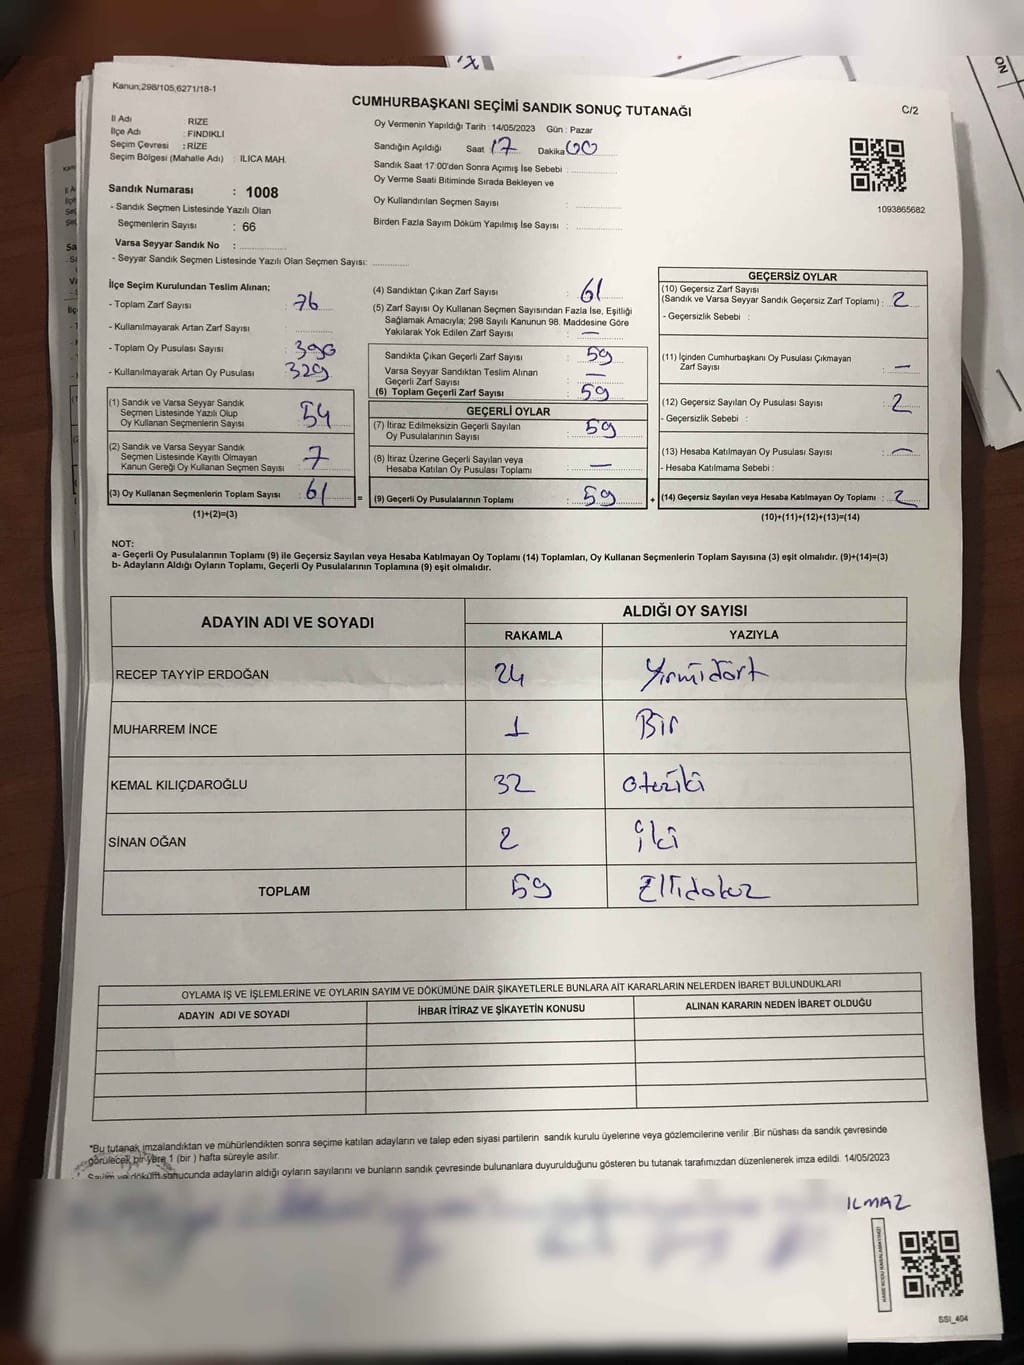 Kanun;298/105,6271/18-1
CUMHURBAŞKANI SEÇİMİ SANDIK SONUÇ TUTANAĞI
C/2
İl Adı : RİZE
İlçe Adı : FINDIKLI
Seçim Çevresi : RİZE
Seçim Bölgesi (Mahalle Adı) : ILICA MAH.
Sandık Numarası : 1008
- Sandık Seçmen Listesinde Yazılı Olan
Seçmenlerin Sayısı : 66
Varsa Seyyar Sandık No :
- Seyyar Sandık Seçmen Listesinde Yazılı Olan Seçmen Sayısı:
Oy Vermenin Yapıldığı Tarih : 14/05/2023 Gün : Pazar
Sandığın Açıldığı Saat 17 Dakika 00
Sandık Saat 17:00'den Sonra Açımış İse Sebebi :
Oy Verme Saati Bitiminde Sırada Bekleyen ve
Oy Kullandırılan Seçmen Sayısı :
Birden Fazla Sayım Döküm Yapılmış İse Sayısı :
1093865682
İlçe Seçim Kurulundan Teslim Alınan;
- Toplam Zarf Sayısı : 76
- Kullanılmayarak Artan Zarf Sayısı :
- Toplam Oy Pusulası Sayısı : 390
- Kullanılmayarak Artan Oy Pusulası : 329
(1) Sandık ve Varsa Seyyar Sandık
Seçmen Listesinde Yazılı Olup
Oy Kullanan Seçmenlerin Sayısı : 54
(2) Sandık ve Varsa Seyyar Sandık
Seçmen Listesinde Kayıtlı Olmayan
Kanun Gereği Oy Kullanan Seçmen Sayısı : 7
(3) Oy Kullanan Seçmenlerin Toplam Sayısı : 61
(1)+(2)=(3)
=
(4) Sandıktan Çıkan Zarf Sayısı : 61
(5) Zarf Sayısı Oy Kullanan Seçmen Sayısından Fazla İse, Eşitliği
Sağlamak Amacıyla; 298 Sayılı Kanunun 98. Maddesine Göre
Yakılarak Yok Edilen Zarf Sayısı : —
Sandıkta Çıkan Geçerli Zarf Sayısı : 59
Varsa Seyyar Sandıktan Teslim Alınan
Geçerli Zarf Sayısı : —
(6) Toplam Geçerli Zarf Sayısı : 59
GEÇERLİ OYLAR
(7) İtiraz Edilmeksizin Geçerli Sayılan
Oy Pusulalarının Sayısı : 59
(8) İtiraz Üzerine Geçerli Sayılan veya
Hesaba Katılan Oy Pusulası Toplamı : —
(9) Geçerli Oy Pusulalarının Toplamı : 59
+
GEÇERSİZ OYLAR
(10) Geçersiz Zarf Sayısı
(Sandık ve Varsa Seyyar Sandık Geçersiz Zarf Toplamı) : 2
- Geçersizlik Sebebi :
(11) İçinden Cumhurbaşkanı Oy Pusulası Çıkmayan
Zarf Sayısı : —
(12) Geçersiz Sayılan Oy Pusulası Sayısı : 2
- Geçersizlik Sebebi :
(13) Hesaba Katılmayan Oy Pusulası Sayısı : —
- Hesaba Katılmama Sebebi :
(14) Geçersiz Sayılan veya Hesaba Katılmayan Oy Toplamı : 2
(10)+(11)+(12)+(13)=(14)
NOT:
a- Geçerli Oy Pusulalarının Toplamı (9) ile Geçersiz Sayılan veya Hesaba Katılmayan Oy Toplamı (14) Toplamları, Oy Kullanan Seçmenlerin Toplam Sayısına (3) eşit olmalıdır. (9)+(14)=(3)
b- Adayların Aldığı Oyların Toplamı, Geçerli Oy Pusulalarının Toplamına (9) eşit olmalıdır.
ADAYIN ADI VE SOYADI ALDIĞI OY SAYISI
RAKAMLA YAZIYLA
RECEP TAYYİP ERDOĞAN 24 Yirmidört
MUHARREM İNCE 1 Bir
KEMAL KILIÇDAROĞLU 32 Otuziki
SİNAN OĞAN 2 iki
TOPLAM 59 Ellidokuz
OYLAMA İŞ VE İŞLEMLERİNE VE OYLARIN SAYIM VE DÖKÜMÜNE DAİR ŞİKAYETLERLE BUNLARA AİT KARARLARIN NELERDEN İBARET BULUNDUKLARI
ADAYIN ADI VE SOYADI İHBAR İTİRAZ VE ŞİKAYETİN KONUSU ALINAN KARARIN NEDEN İBARET OLDUĞU
*Bu tutanak imzalandıktan ve mühürlendikten sonra seçime katılan adayların ve talep eden siyasi partilerin sandık kurulu üyelerine veya gözlemcilerine verilir .Bir nüshası da sandık çevresinde
görülecek bir yere 1 (bir ) hafta süreyle asılır.
Sayım ve döküm sonucunda adayların aldığı oyların sayılarını ve bunların sandık çevresinde bulunanlara duyurulduğunu gösteren bu tutanak tarafımızdan düzenlenerek imza edildi. 14/05/2023
ILMAZ
SSI_404